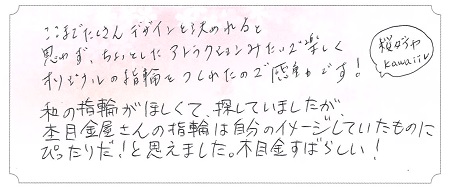 ここまでたくさんデザインを決めれると
思わず、ちょっとしたアトラクションみたいで楽しく
オリジナルの指輪をつくれたので感動です!
桜ダイヤ
kawaii
私の指輪がほしくて、探していましたが、
杢目金屋さんの指輪は自分のイメージしていたものに
ぴったりだ!と思えました。木目金すばらしい!